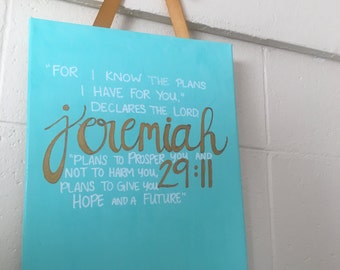 "FOR I KNOW THE PLANS
I HAVE FOR YOU,"
DECLARES THE LORD
jeremiah
"PLANS TO PROSPER YOU AND
NOT TO HARM YOU,
29:11
PLANS TO GIVE YOU
HOPE AND A FUTURE"